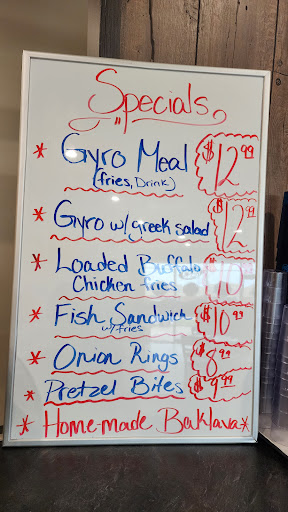 Specials
* Gyro Meal $12.99
(fries, Drink)
* Gyro w/ greek salad $12.99
* Loaded Buffalo $10
Chicken fries
* Fish Sandwich $10.99
w/ fries
* Onion Rings $8.99
* Pretzel Bites $9.99
* Home-made Baklava *